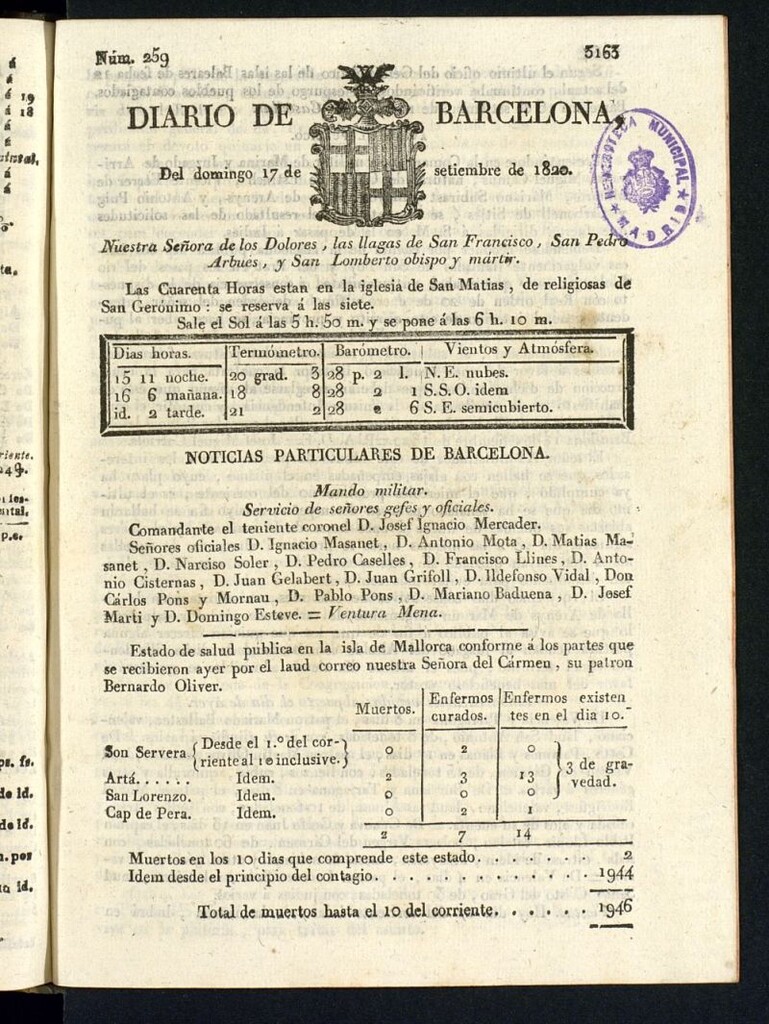 Núm. 259 3163
DIARIO DE BARCELONA,
Del domingo 17 de setiembre de 1820.
HEMEROTECA MUNICIPAL
★ MADRID ★
Nuestra Señora de los Dolores, las llagas de San Francisco, San Pedro
Arbues, y San Lomberto obispo y mártir.
Las Cuarenta Horas estan en la iglesia de San Matias, de religiosas de
San Gerónimo: se reserva á las siete.
Sale el Sol á las 5 h. 50 m. y se pone á las 6 h. 10 m.
Dias horas. Termómetro. Barómetro. Vientos y Atmósfera.
15 11 noche. 20 grad. 3 28 p. 2 l. N. E. nubes.
16 6 mañana. 18 8 28 2 1 S. S. O. idem
id. 2 tarde. 21 2 28 2 6 S. E. semicubierto.
NOTICIAS PARTICULARES DE BARCELONA.
Mando militar.
Servicio de señores gefes y oficiales.
Comandante el teniente coronel D. Josef Ignacio Mercader.
Señores oficiales D. Ignacio Masanet, D. Antonio Mota, D. Matias Ma-
sanet, D. Narciso Soler, D. Pedro Caselles, D. Francisco Llines, D. Anto-
nio Cisternas, D. Juan Gelabert, D. Juan Grifoll, D. Ildefonso Vidal, Don
Cárlos Pons y Mornau, D. Pablo Pons, D. Mariano Baduena, D. Josef
Marti y D. Domingo Esteve. = Ventura Mena.
Estado de salud publica en la isla de Mallorca conforme á los partes que
se recibieron ayer por el laud correo nuestra Señora del Cármen, su patron
Bernardo Oliver.
Muertos. Enfermos curados. Enfermos existen
tes en el dia 10.
Son Servera { Desde el 1.º del cor-
riente al 10 inclusive. } 0 2 0
Artá...... Idem. 2 3 13
San Lorenzo. Idem. 0 0 0
Cap de Pera. Idem. 0 2 1
} 3 de gra-
vedad.
2 7 14
Muertos en los 10 dias que comprende este estado. . . . . . . 2
Idem desde el principio del contagio. . . . . . . . . . . . 1944
Total de muertos hasta el 10 del corriente. . . . . . 1946